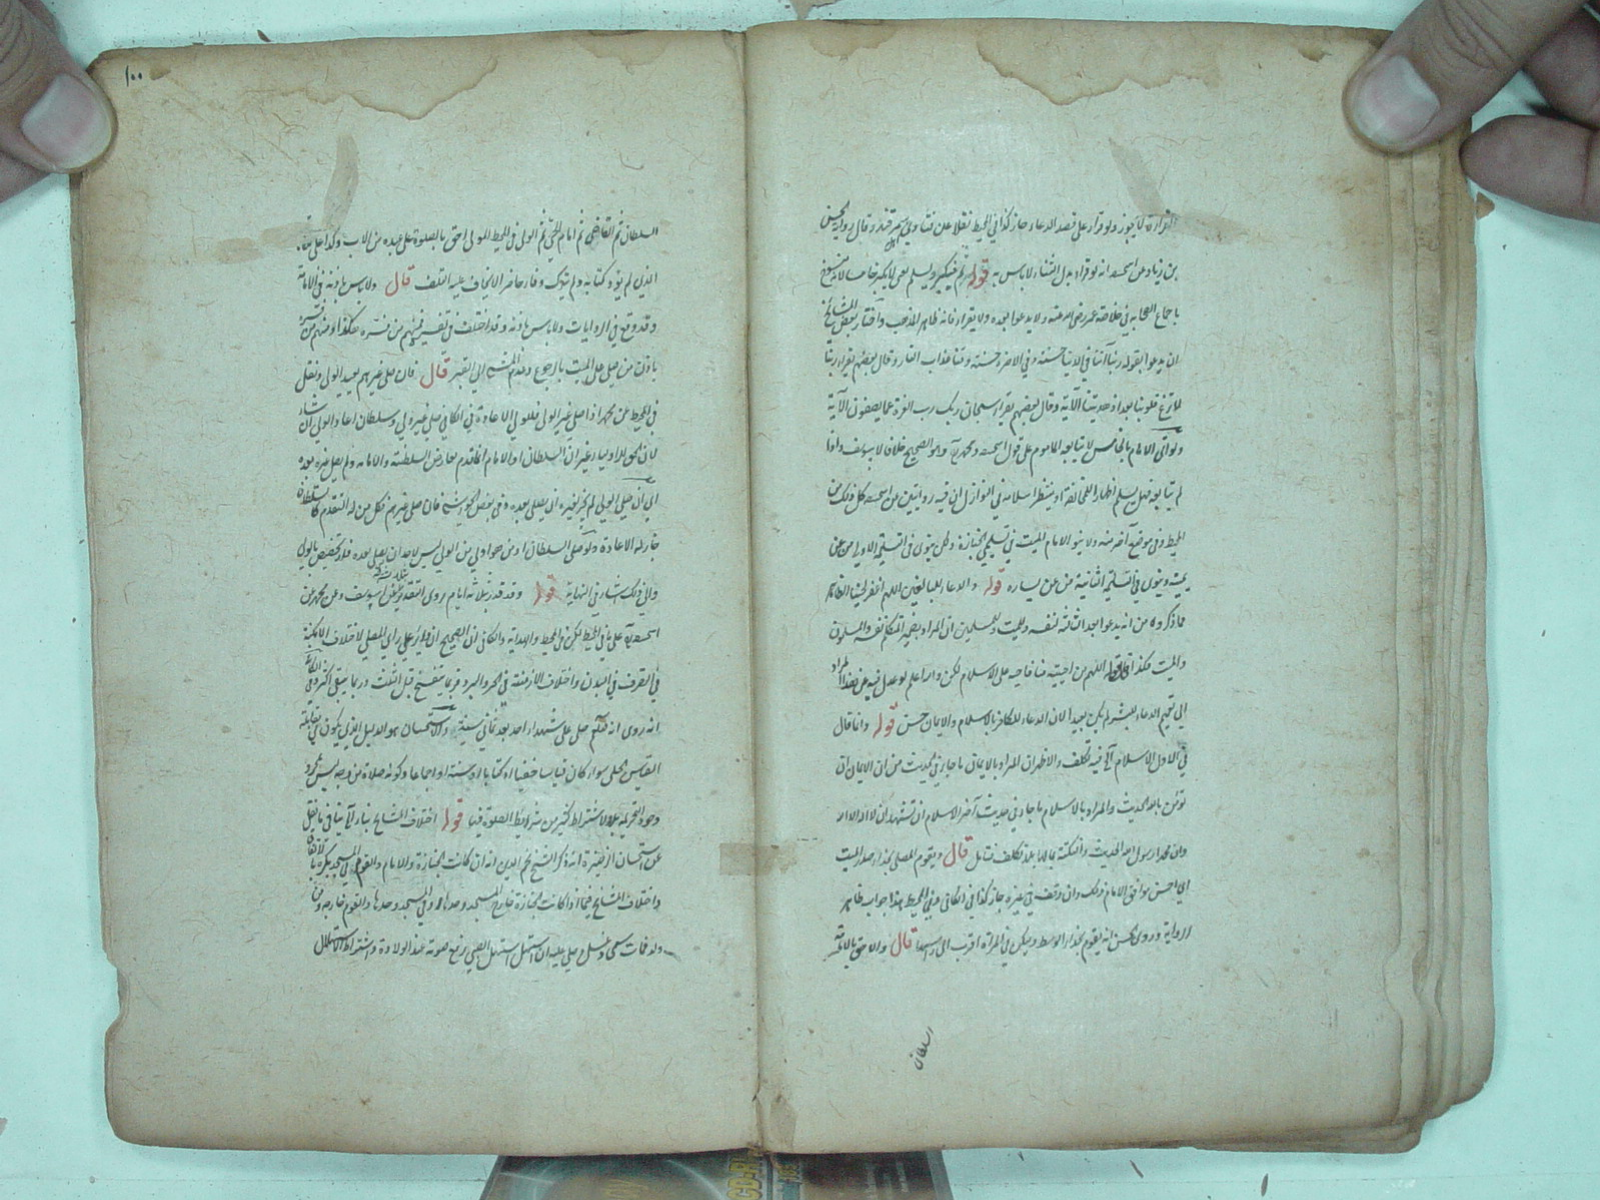 القراءة لا يجوز ولو قرأ على قصد الدعاء جاز كذا في المحيط نقلا عن فتاوى سمرقند وقال رواية الحسن
بن زياد عن ابيحنيفة انه لو قرأ بدل الثناء لا بأس به قوله ثم يكبر ويسلم يعني لا يكبر خامسا لانه منسوخ
باجماع الصحابة في خلافة عمر رضي الله عنه ولا يدعو بعده ولا يقرأ فانه ظاهر المذهب واختار بعض المشايخ
ان يدعو بقوله ربنا آتنا في الدنيا حسنة وفي الآخرة حسنة وقنا عذاب النار وقال بعضهم يقرأ ربنا
لا تزغ قلوبنا بعد اذ هديتنا الآية وقال بعضهم يقرأ سبحان ربك رب العزة عما يصفون الآية
ولو اتى الامام بالخامس لا يتابعه المأموم على قول ابيحنيفة ومحمد وهو الصحيح خلافا لابي يوسف واذا
لم يتابعه فهل يسلم اظهارا للمخالفة او ينتظر سلامه في النوازل ان فيه روايتين من ابيحنيفة كل ذلك من
المحيط وفي موضع آخر منه ولا ينوي الامام الميت في تسليمتي الجنازة ولكن ينوي في التسليمة الاولى من عن
يمينه وينوي في التسليمة الثانية من عن يساره قوله والدعاء للبالغين اللهم اغفر لحينا الظاهر
مما ذكروه من انه يدعو بعد الثالثة لنفسه وللميت وللمسلمين ان المراد بضمير المتكلم نفسه والمسلمون
والميت هكذا قوله اللهم من احييته منا فاحيه على الاسلام لكن والله اعلم لو عدل فيه عن هذا المراد
الى تعميم الدعاء للبشر لم يكن بعيدا لان الدعاء للكافر بالاسلام والايمان حسن قوله وانما قال
في الاول الاسلام الخ فيه تكلف والاظهر ان المراد بالايمان ما جاء في الحديث من ان الايمان ان
تؤمن بالله الحديث والمراد بالاسلام ما جاء في حديث آخر الاسلام ان تشهد ان لا اله الا الله
وان محمدا رسول الله الحديث والنكتة بحالها بلا تكلف تأمل قال ويقوم المصلي بحذاء صدر الميت
اي احسن مواقف الامام ذلك وان وقف في غيره جاز كذا في الكافي وفي المحيط هذا جواب ظاهر
الرواية وروى الحسن انه يقوم بحذاء الوسط ويكون في المرأة اقرب الى رأسها قال والاحق بالامامة
السلطان
١٠٠
السلطان ثم القاضي ثم امام الحي ثم الولي في المحيط المولى احق بالصلوة على عبده من الاب وكذا على
الذي لم يؤد كتابته ولم يترك وفاء حاضرا لا يخاف عليه التلف قال ولا بأس باذنه في الامامة
وقد وقع في الروايات ولا بأس باذنه وقد اختلف في تفسيره فمنهم من فسره هكذا ومنهم من فسره
باذن من صلى على الميت بالرجوع وعدم المشي الى القبر قال فان صلى غيرهم يعيد الولي ونقل
في المحيط عن محمد اذا صلى غير الولي فللولي الاعادة في الكافي صلى غير ولي وسلطان اعاد الولي ان شاء
لان الحق للاولياء غير ان السلطان او الامام انما قدم بعارض السلطنة والامامة ولم يصل غيره بعده
اي ان صلى الولي لم يجز لغيره ان يصلي بعده وفي بعض الحواشي فان صلى غيرهم فكل من له التقدم كالسلطان
جاز له الاعادة ولو صلى السلطان او من هو اولى من الولي ليس لاحد ان يصلي بعده فلا تخصيص بالولي
والى ذلك اشار في النهاية قوله وقد قدر بثلاثة ايام روي التقدير بثلاثة عن ابي يوسف وعن محمد عن
ابيحنيفة على ما في المحيط لكن في المحيط والهداية والكافي ان الصحيح ان المعتبر على رأي المصلي لاختلاف الامكنة
في التصرف في البدن واختلاف الازمنة في الحر والبرد فربما يتفسخ قبل الثلث وربما يبقى اكثر وفي الكافي
انه روي انه صلعم صلى على شهداء احد بعد ثماني سنين والاستحسان هو الدليل الذي يكون في مقابلة
القياس الجلي سواء كان قياسا خفيا او كتابا او سنة او اجماعا وكونه صلاة من وجه ليس بمجرد
وجود التحريمة بل لاشتراط كثير من شرايط الصلوة فيها قوله اختلاف المشايخ بناء الخ ينافي ما نقل
عن استحسان الذخيرة انه ذكر الشيخ نجم الدين انه ان كانت الجنازة والامام والقوم في المسجد يكره بالاتفاق
واختلاف المشايخ فيما اذا كانت الجنازة خارج المسجد وحدها او في المسجد وحدها والقوم خارجه ومن
ولد فمات سمي وغسل وصلي عليه ان استهل استهل الصبي رفع صوته عند الولادة واشتراط الاستهلال